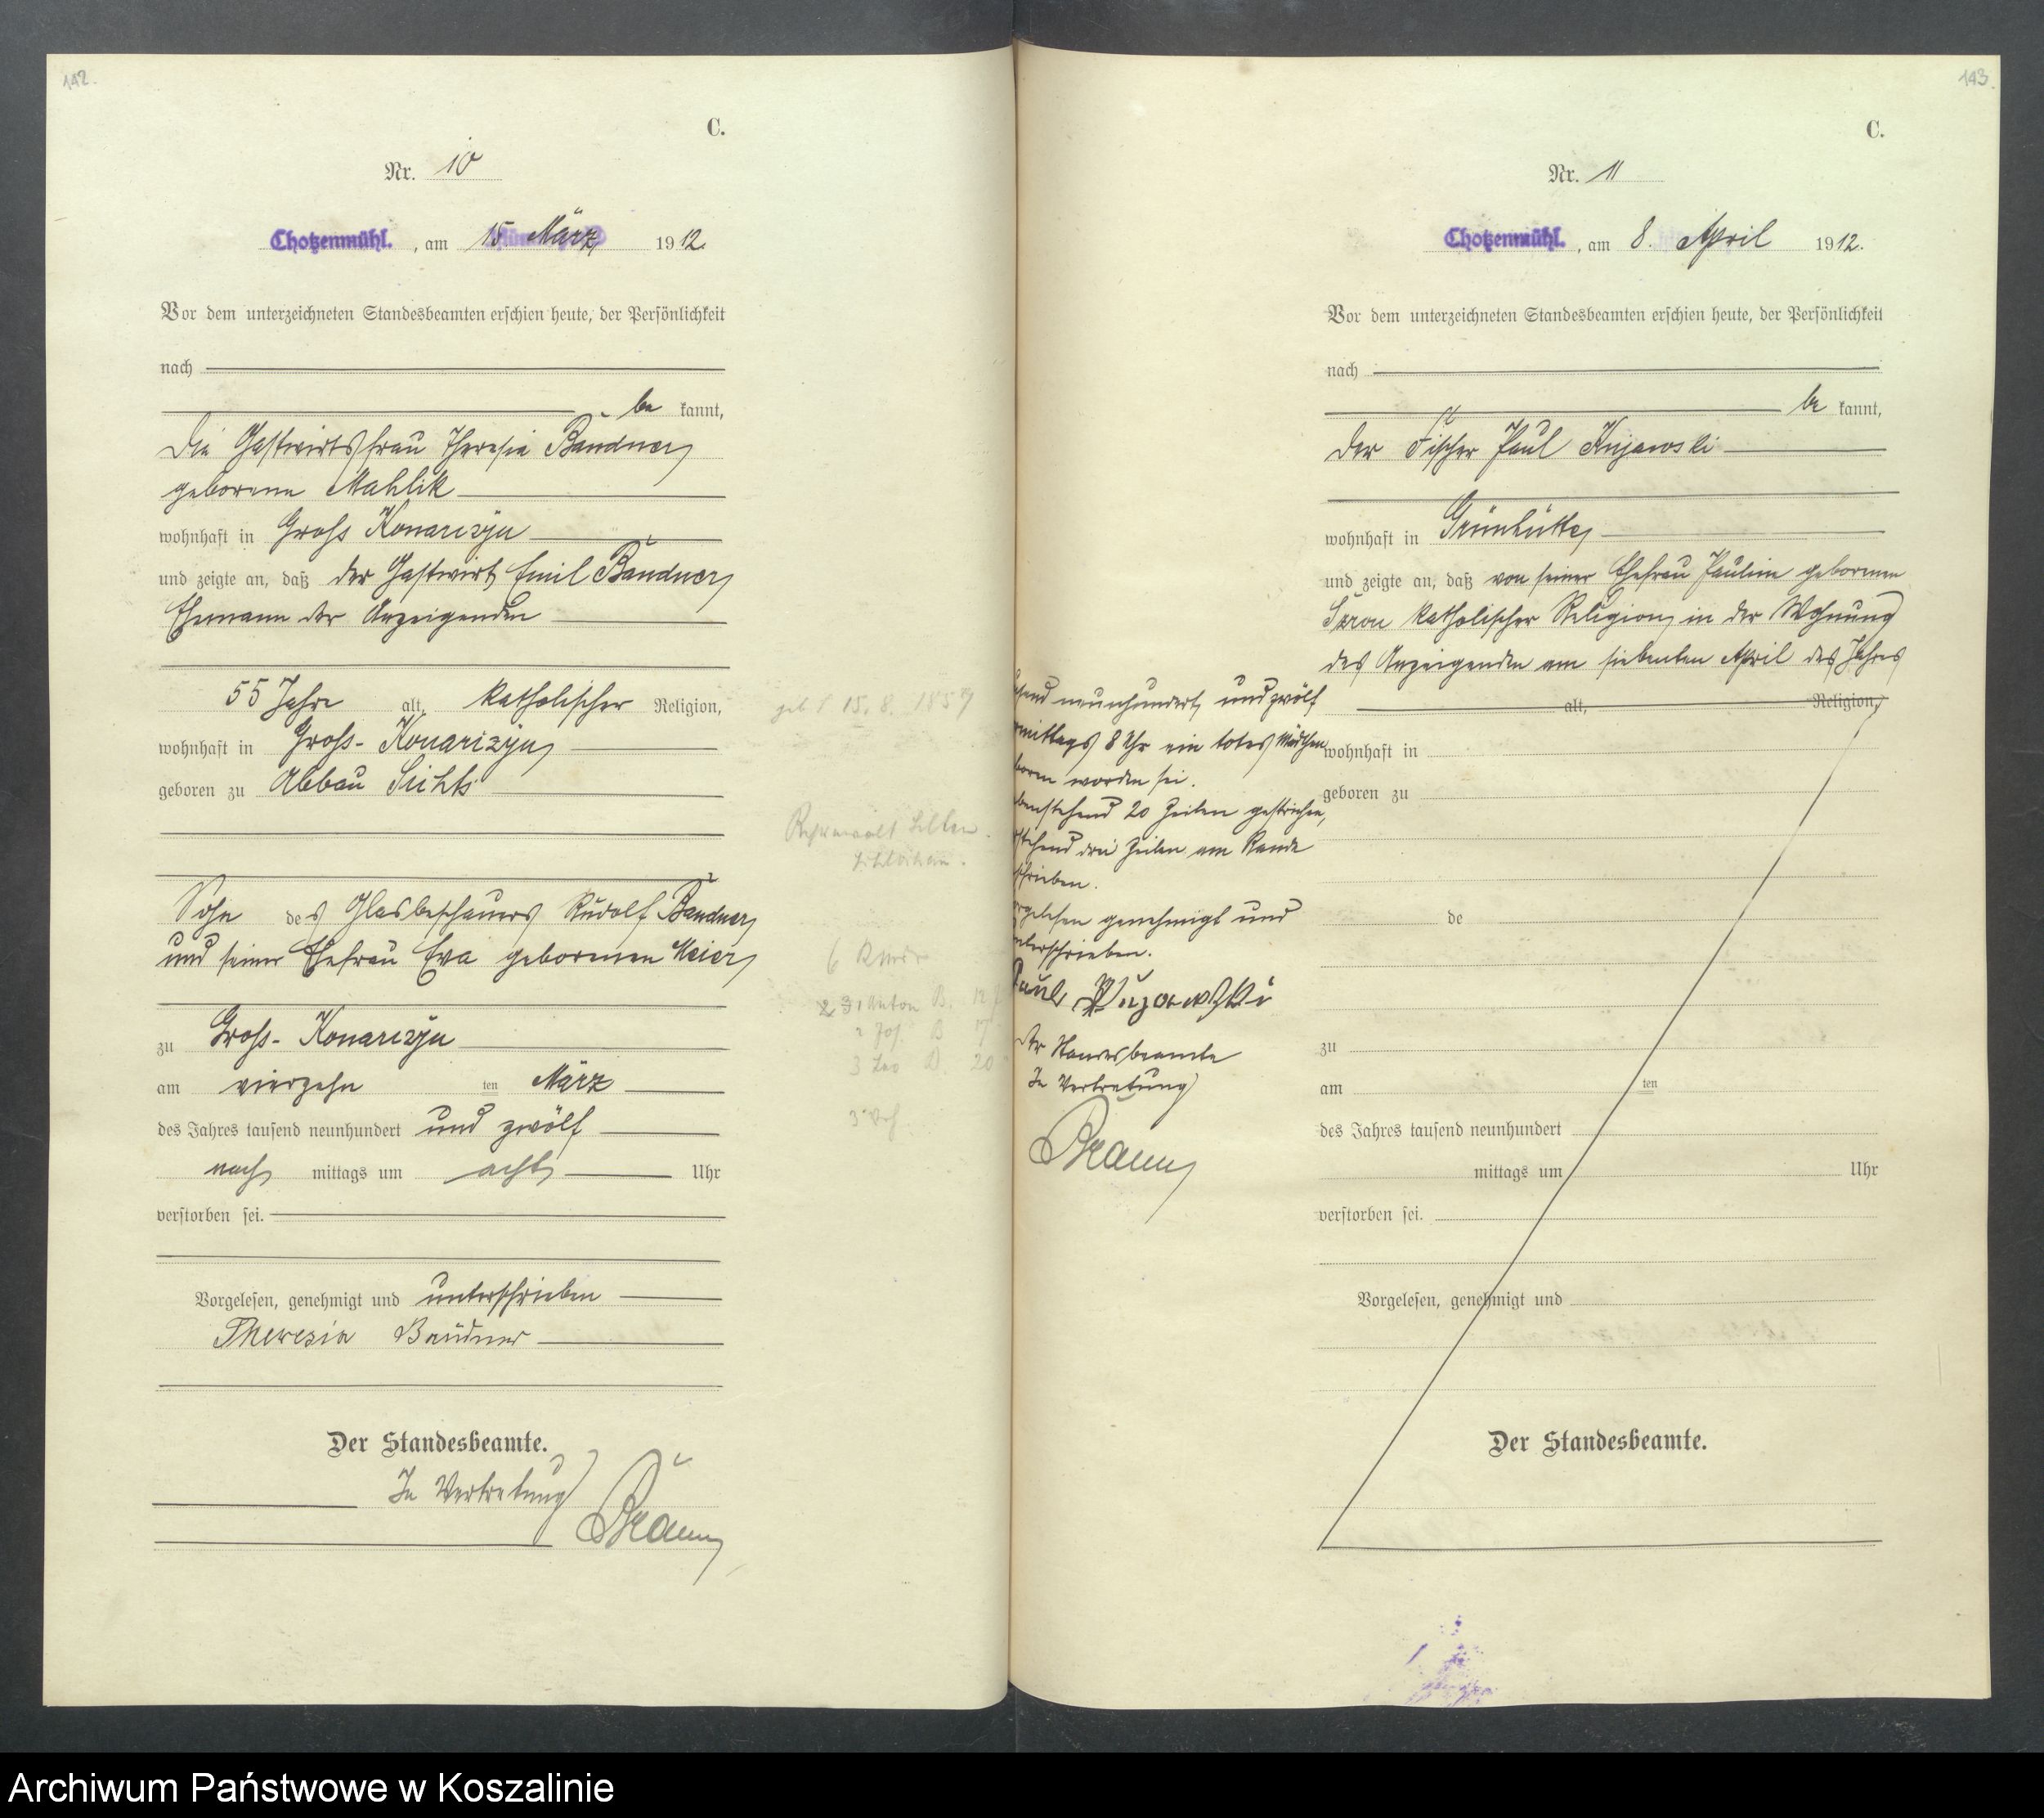 142.
C.
Nr. 10
Chotzenmühl. , am 15 März 1912.
Vor dem unterzeichneten Standesbeamten erschien heute, der Persönlichkeit
nach
be kannt,
die Gastwirtsfrau Theresia Baudner
geborene Mahlik
wohnhaft in Groß Konarczyn
und zeigte an, daß der Gastwirt Emil Baudner
Ehemann der Anzeigenden
55 Jahre alt, katholischer Religion,
wohnhaft in Groß-Konarczyn
geboren zu Abbau
Sohn des Glasbeschauers Rudolf Baudner
und seiner Ehefrau Eva geborenen Meier
zu Groß-Konarczyn
am vierzehn ten März
des Jahres tausend neunhundert und zwölf
nach mittags um acht Uhr
verstorben sei.
Vorgelesen, genehmigt und unterschrieben
Theresia Baudner
Der Standesbeamte.
In Vertretung
Braun
geb. 15. 8. 1857
6 Kinder
Anton B. 12
2 Jos. B 17
3 Leo B. 20
143.
C.
Nr. 11
Chotzenmühl. , am 8. April 1912.
Vor dem unterzeichneten Standesbeamten erschien heute, der Persönlichkeit
nach
be kannt,
der Fischer Paul Kujawski
wohnhaft in Grünhütte
und zeigte an, daß von seiner Ehefrau Pauline geborenen
katholischer Religion, in der Wohnung
des Anzeigenden am siebenten April des Jahres
alt, Religion,
wohnhaft in
geboren zu
de
zu
am ten
des Jahres tausend neunhundert
mittags um Uhr
verstorben sei.
Vorgelesen, genehmigt und
Der Standesbeamte.
send neunhundert und zwölf
mittags 8 Uhr ein totes Mädchen
boren worden sei.
benstehend 20 Zeilen gestrichen,
stehend drei Zeilen am Rande
schrieben.
rgelesen genehmigt und
nterschrieben.
Paul Kujawski
Der Standesbeamte
In Vertretung
Braun
Archiwum Państwowe w Koszalinie